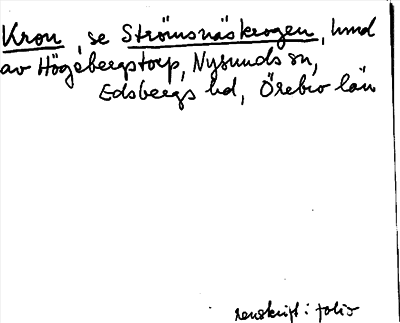 Kron, se Strömsnäskrogen, hmd
av Högebergstorp, Nysunds sn,
Edsbergs hd, Örebro län
renskrift i folio